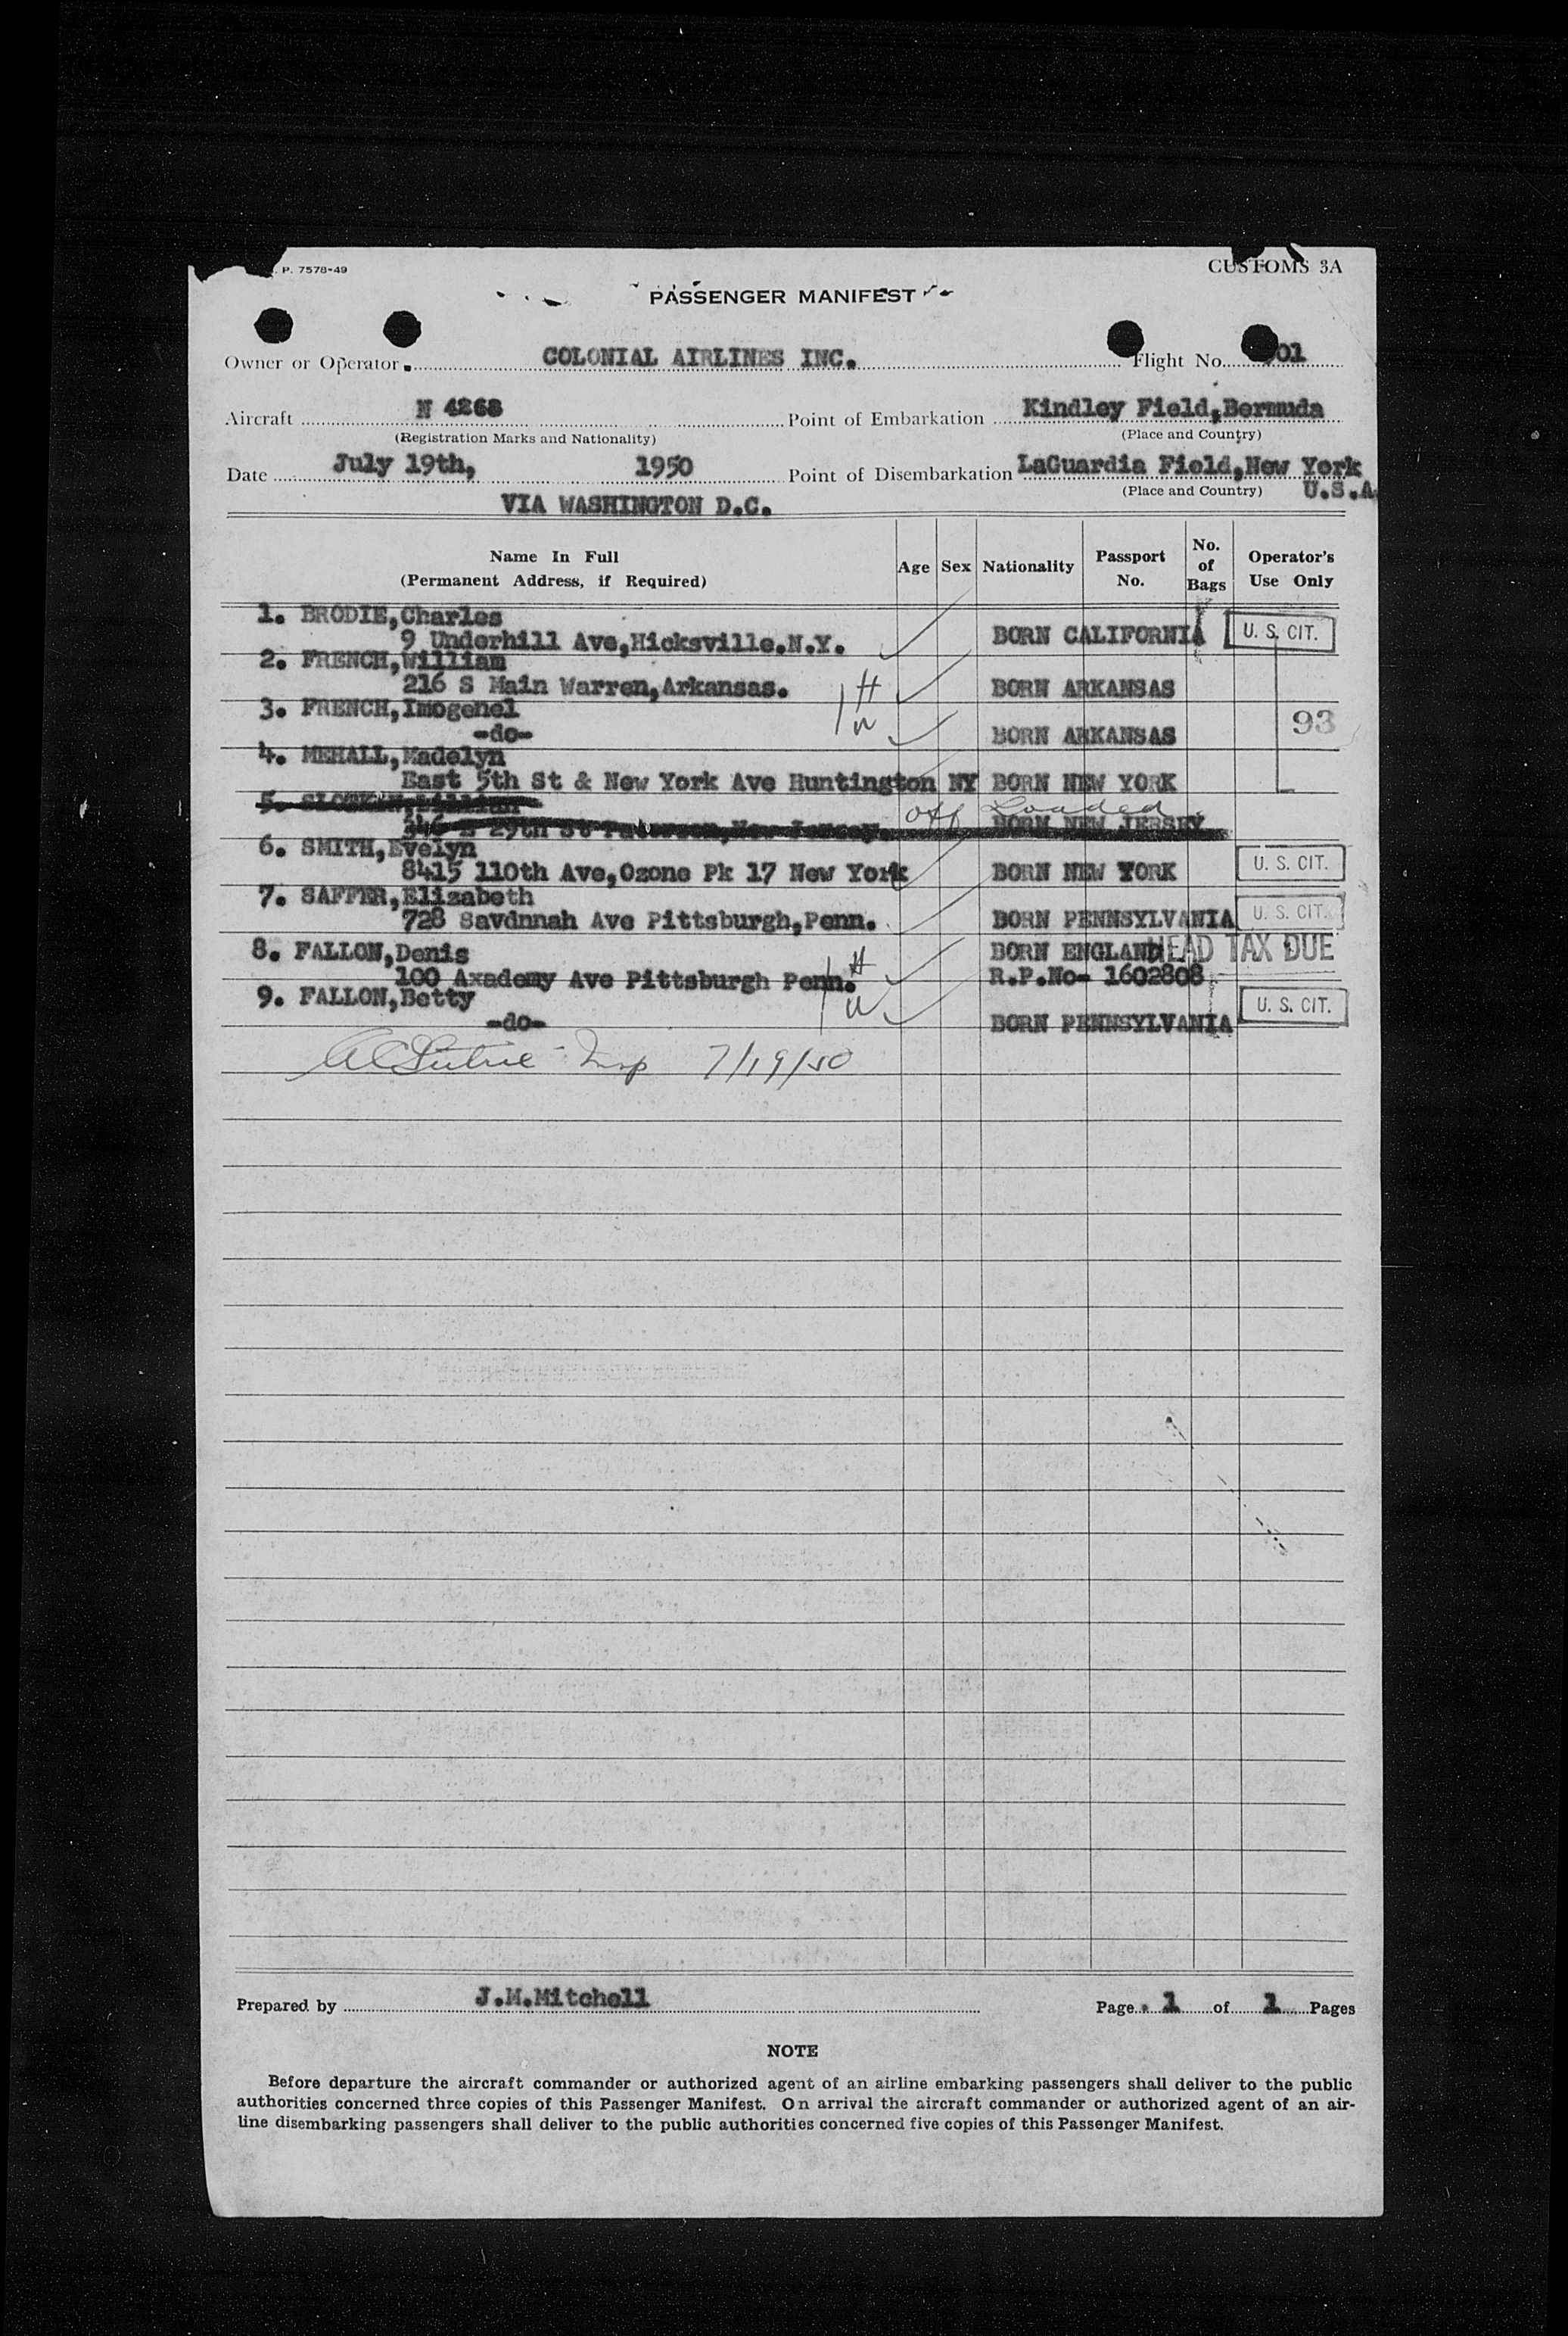 P. 7578-49
CUSTOMS 3A
PASSENGER MANIFEST
Owner or Operator COLONIAL AIRLINES INC. Flight No. 01
Aircraft N 4268 Point of Embarkation Kindley Field,Bermuda
(Registration Marks and Nationality) (Place and Country)
Date July 19th, 1950 Point of Disembarkation LaGuardia Field,New York
(Place and Country) U.S.A
VIA WASHINGTON D.C.
Name In Full (Permanent Address, if Required) Age Sex Nationality Passport No. No. of Bags Operator's Use Only
1. BRODIE,Charles
9 Underhill Ave,Hicksville.N.Y. BORN CALIFORNIA U. S. CIT.
2. FRENCH,William
216 S Main Warren,Arkansas. H BORN ARKANSAS
3. FRENCH,Imogenel
-do- W BORN ARKANSAS 93
4. MEHALL,Madelyn
East 5th St & New York Ave Huntington NY BORN NEW YORK
5. Off Loaded
346 29th St New Jersey. BORN NEW JERSEY
6. SMITH,Evelyn
8415 110th Ave,Ozone Pk 17 New York BORN NEW YORK U. S. CIT.
7. SAFFER,Elizabeth
728 Savdnnah Ave Pittsburgh,Penn. BORN PENNSYLVANIA U. S. CIT.
8. FALLON,Denis BORN ENGLAND HEAD TAX DUE
100 Axademy Ave Pittsburgh Penn. H R.P.No- 1602808
9. FALLON,Betty
-do- W BORN PENNSYLVANIA U. S. CIT.
Insp 7/19/50
Prepared by J.M.Mitchell Page 1 of 1 Pages
NOTE
Before departure the aircraft commander or authorized agent of an airline embarking passengers shall deliver to the public
authorities concerned three copies of this Passenger Manifest. On arrival the aircraft commander or authorized agent of an air-
line disembarking passengers shall deliver to the public authorities concerned five copies of this Passenger Manifest.